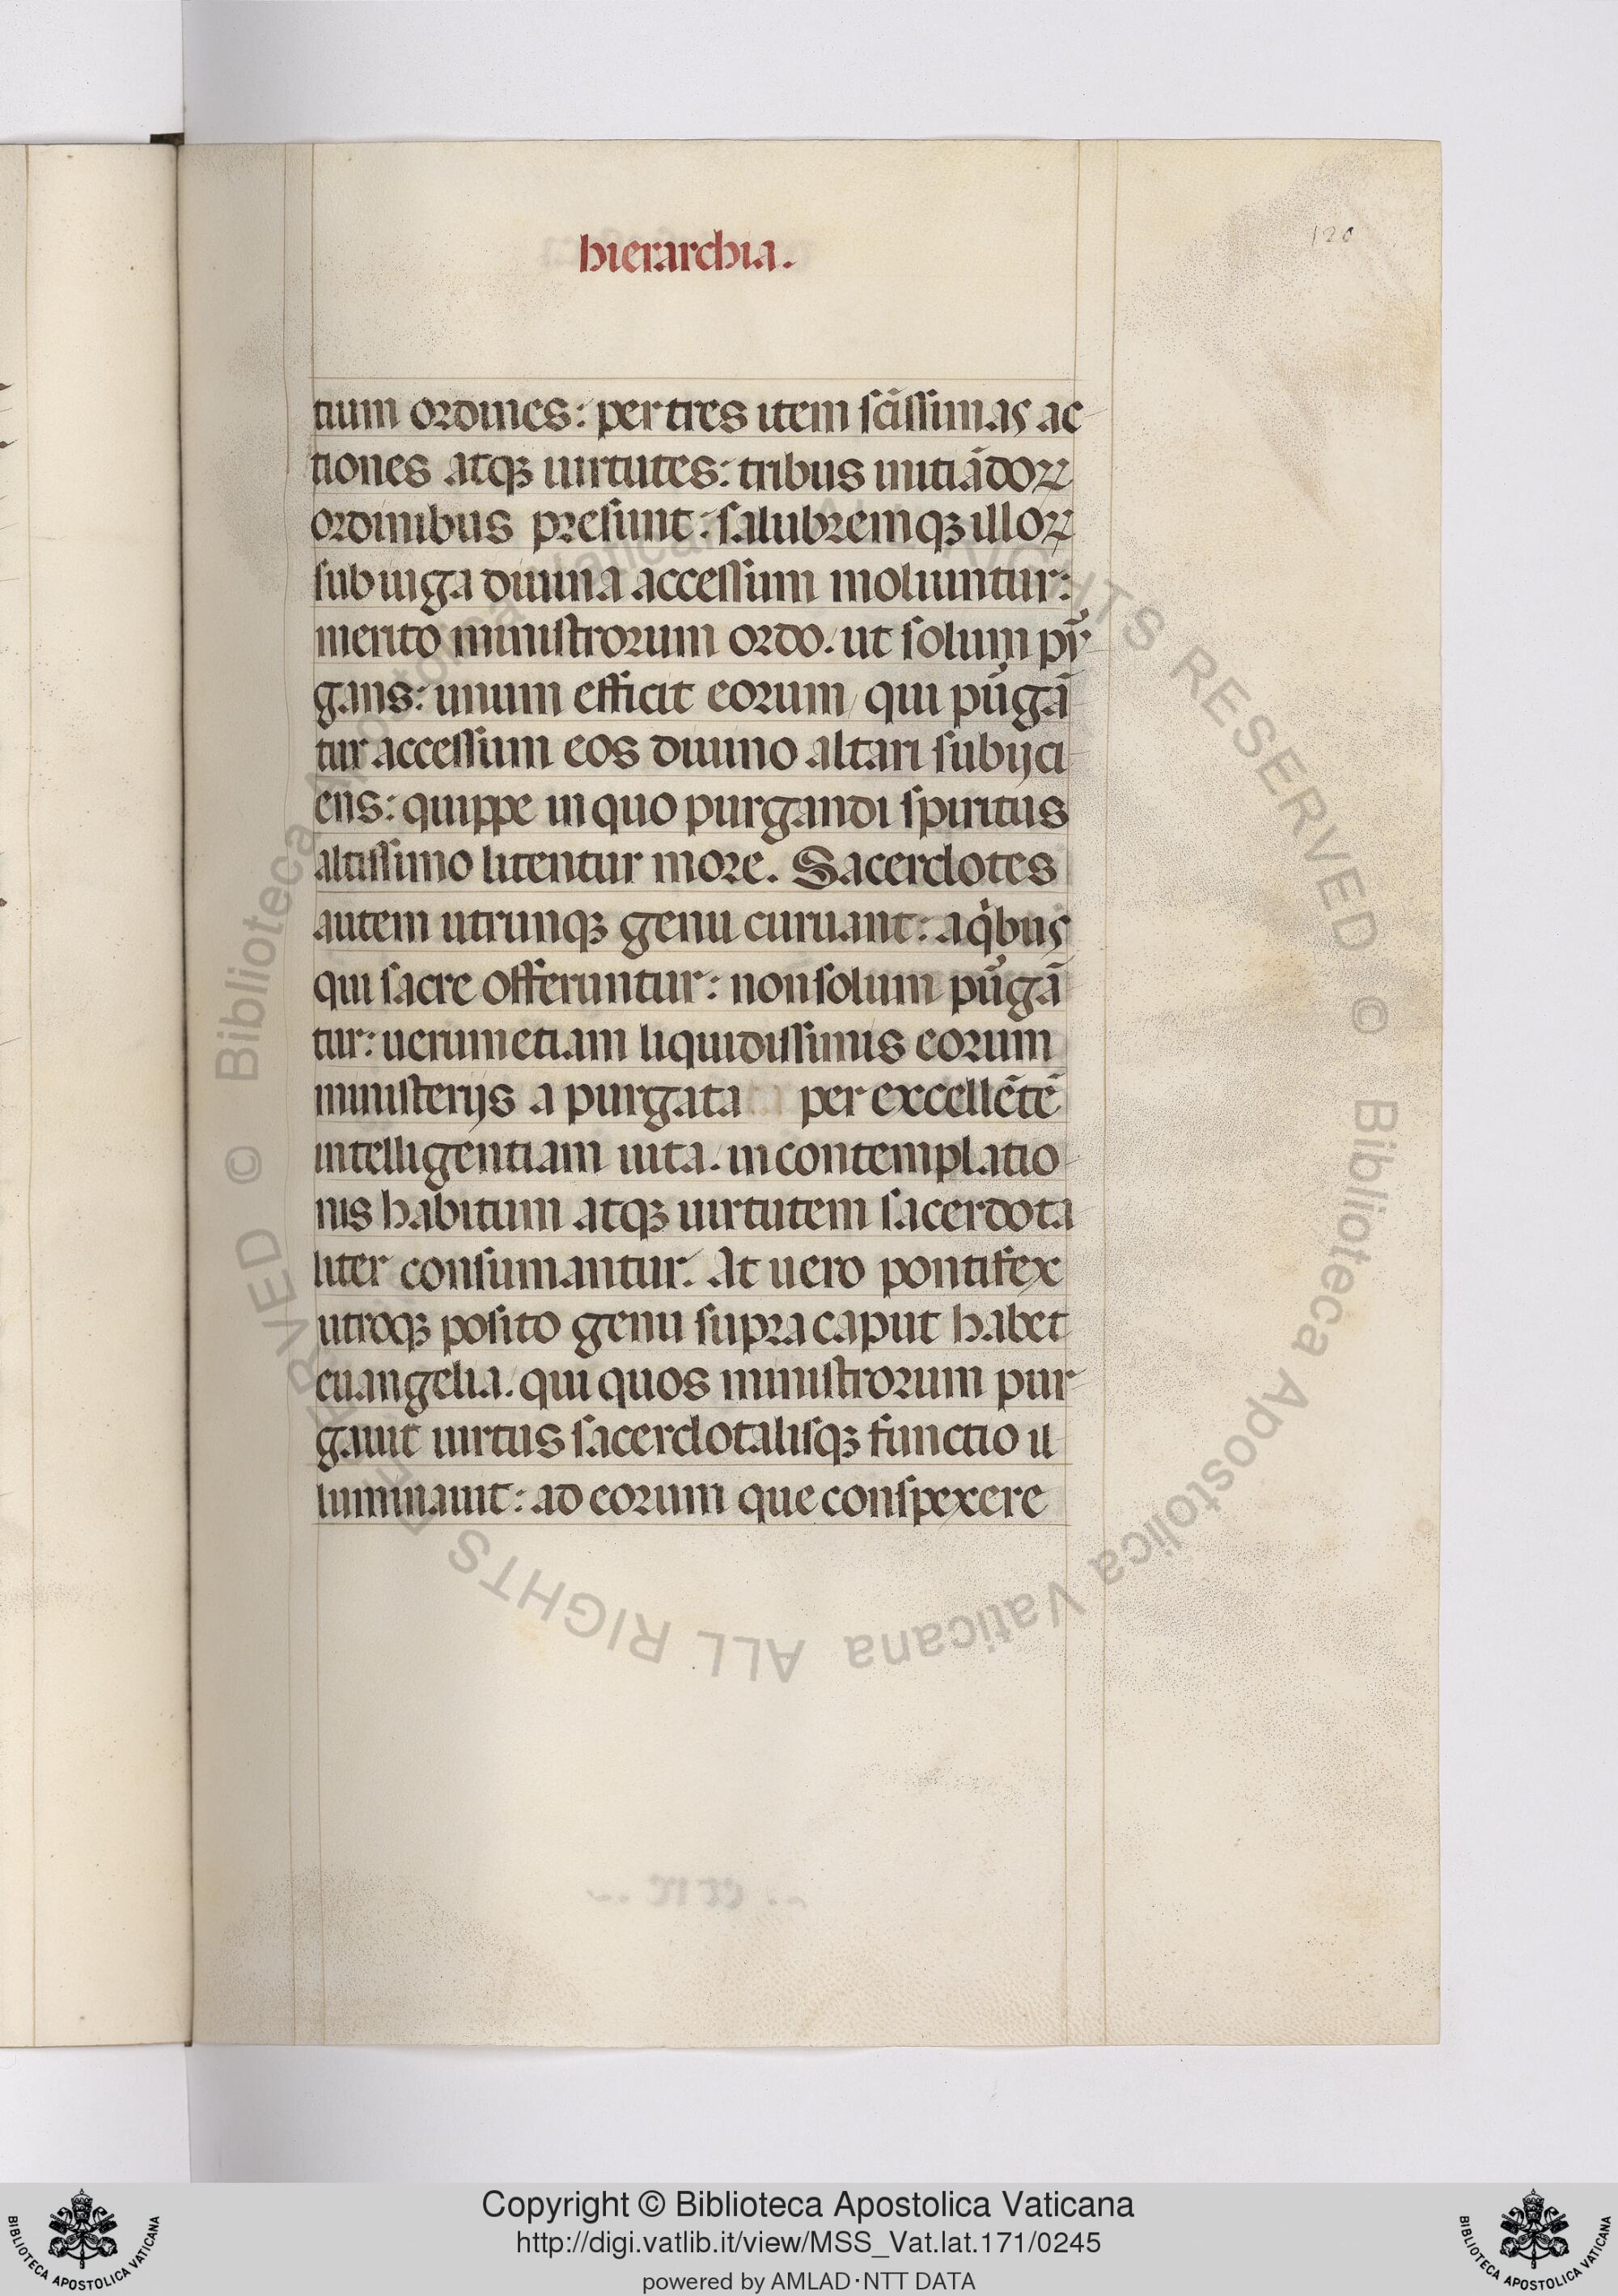 hierarchia.
120
tium ordines: per tres item sc̃issimas ac
tiones atqꝫ uirtutes: tribus initiãdoꝝ
ordinibus presunt: salubremqꝫ illoꝝ
sub iuga diuina accessum moliuntur:
merito ministrorum ordo. ut solum pur᷒
gans: unum efficit eorum, qui pur᷒gã
tur accessum eos diuino altari subijci
ens: quippe in quo purgandi spiritus
altissimo litentur more. Sacerdotes
autem utrunqꝫ genu curuant: a qͥbus
qui sacre offeruntur: non solum pur᷒gã
tur: uerum etiam liquidissimis eorum
ministerijs a purgata per excellẽtẽ
intelligentiam uita. in contemplatio
nis habitum atqꝫ uirtutem sacerdota
liter consumantur. At uero pontifex
utroqꝫ posito genu supra caput habet
euangelia. qui quos ministrorum pur
gauit uirtus sacerdotalisqꝫ functio il
luminauit: ad eorum que conspexere
Copyright © Biblioteca Apostolica Vaticana
http://digi.vatlib.it/view/MSS_Vat.lat.171/0245
powered by AMLAD·NTT DATA
BIBLIOTECA APOSTOLICA VATICANA
BIBLIOTECA APOSTOLICA VATICANA
© Biblioteca Apostolica Vaticana ALL RIGHTS RESERVED © Biblioteca Apostolica Vaticana ALL RIGHTS RESERVED